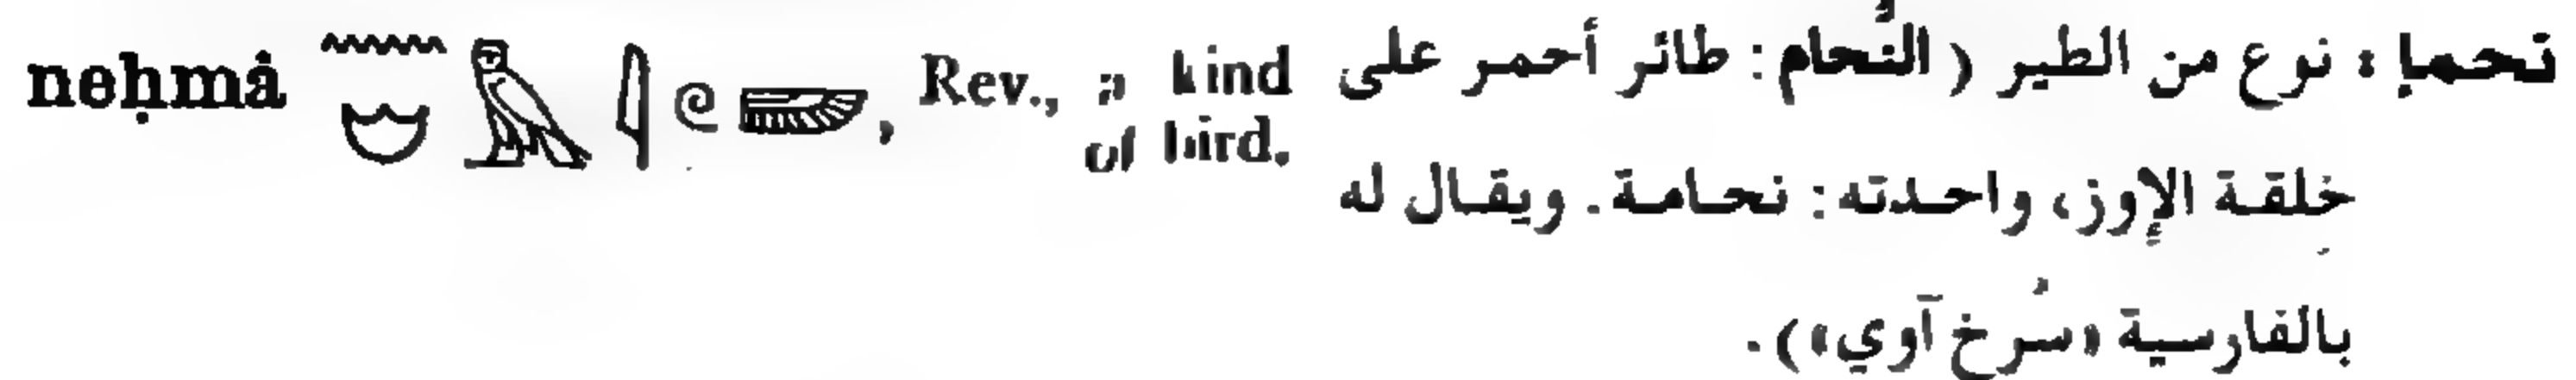 neḥmȧ 𓈖𓎛𓅓𓇋𓏲𓆃, Rev., a kind of bird.
نحما: نوع من الطير (النُّحام: طائر أحمر على
خِلقة الإوز، واحدته: نحامة. ويقال له
بالفارسية «سُرخ آوي»).